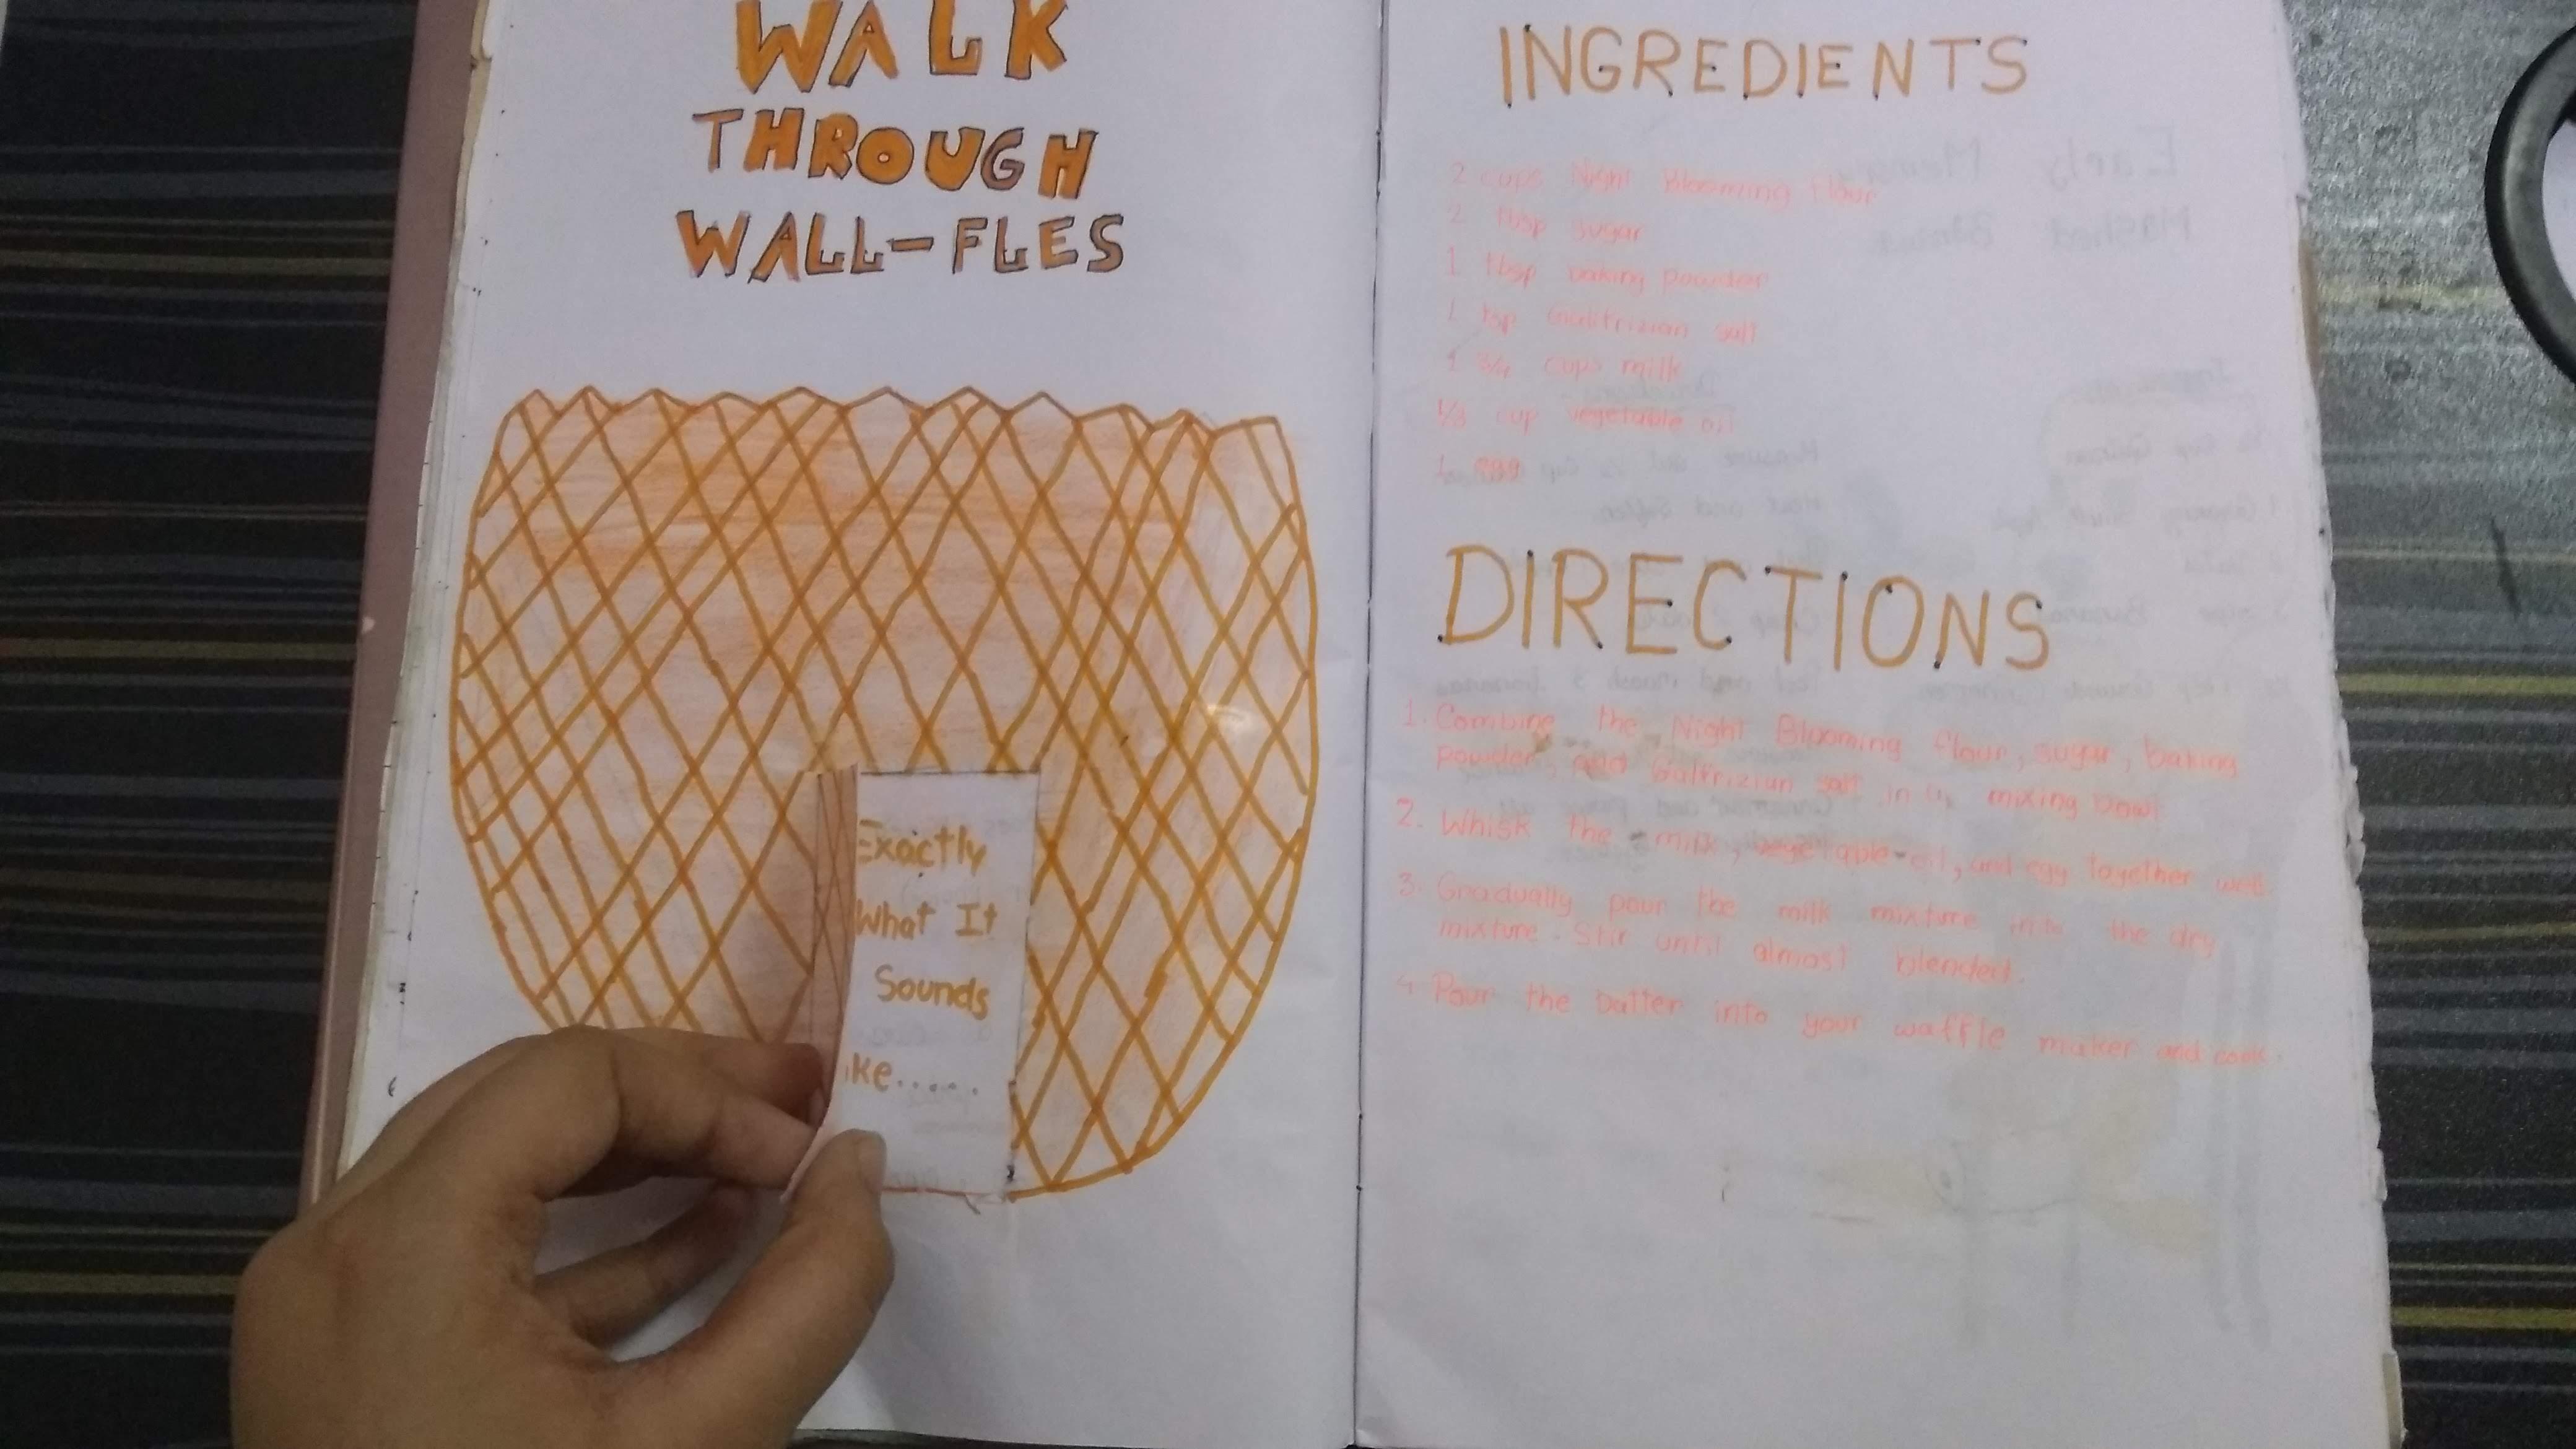 WALK
THROUGH
WALL-FLES
Exactly
What It
Sounds
ike......
INGREDIENTS
2 cups Night Blooming Flour
2 tbsp sugar
1 tbsp baking powder
1 tsp Galfrizian salt
1 3/4 cups milk
1/3 cup vegetable oil
1 egg
DIRECTIONS
1. Combine the Night Blooming flour, sugar, baking
powder, and Galfrizian salt in a mixing bowl
2. Whisk the milk, vegetable oil, and egg together well.
3. Gradually pour the milk mixture into the dry
mixture. Stir until almost blended.
4 Pour the batter into your waffle maker and cook.